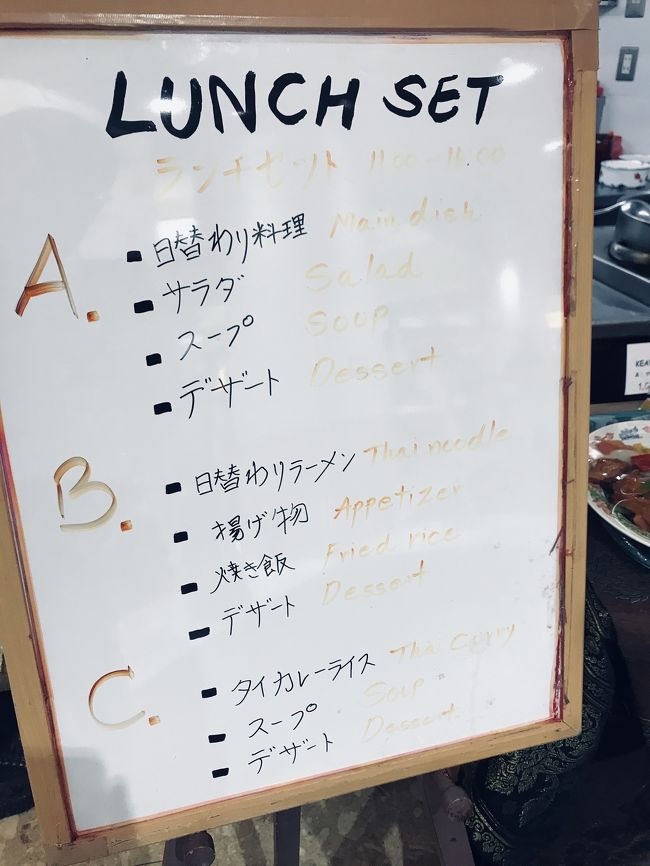 LUNCH SET
ランチセット 11:00-16:00
A.
日替わり料理 Main dish
サラダ Salad
スープ Soup
デザート Dessert
B.
日替わりラーメン Thai noodle
揚げ物 Appetizer
焼き飯 Fried rice
デザート Dessert
C.
タイカレーライス Thai Curry
スープ Soup
デザート Dessert